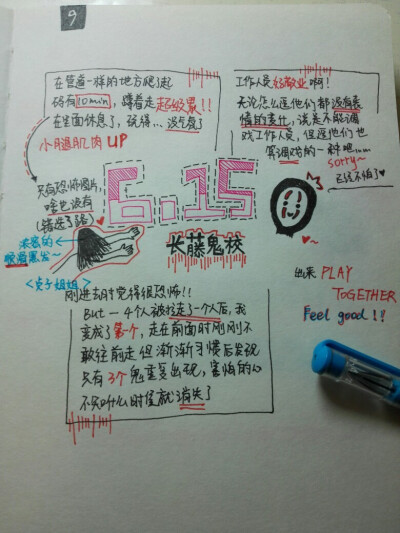 9
在管道一样的地方爬了起
码有10min，蹲着走超级累!!
在里面休息了，玩得…没气氛了
小腿肌肉UP
工作人员好敬业啊
无论怎么逗他们都没有表
情的表作，说是不能调
戏工作人员，但逗他们也
算调戏的一种吧
sorry~
已经不怕了
只有恐怖图片，
啥也没有
(错进了路)
6.15
浓密的
眼
<贞子姐姐>
长藤鬼校
刚进去时觉得很恐怖!!
But 一个个人被拉走了一个人后，我
变成了第一个，走在前面时刚刚不
敢往前走但渐渐习惯后发现
只有3个鬼重复出现，害怕的心
不知什么时候就消失了
出来PLAY
TOGETHER
Feel good!!